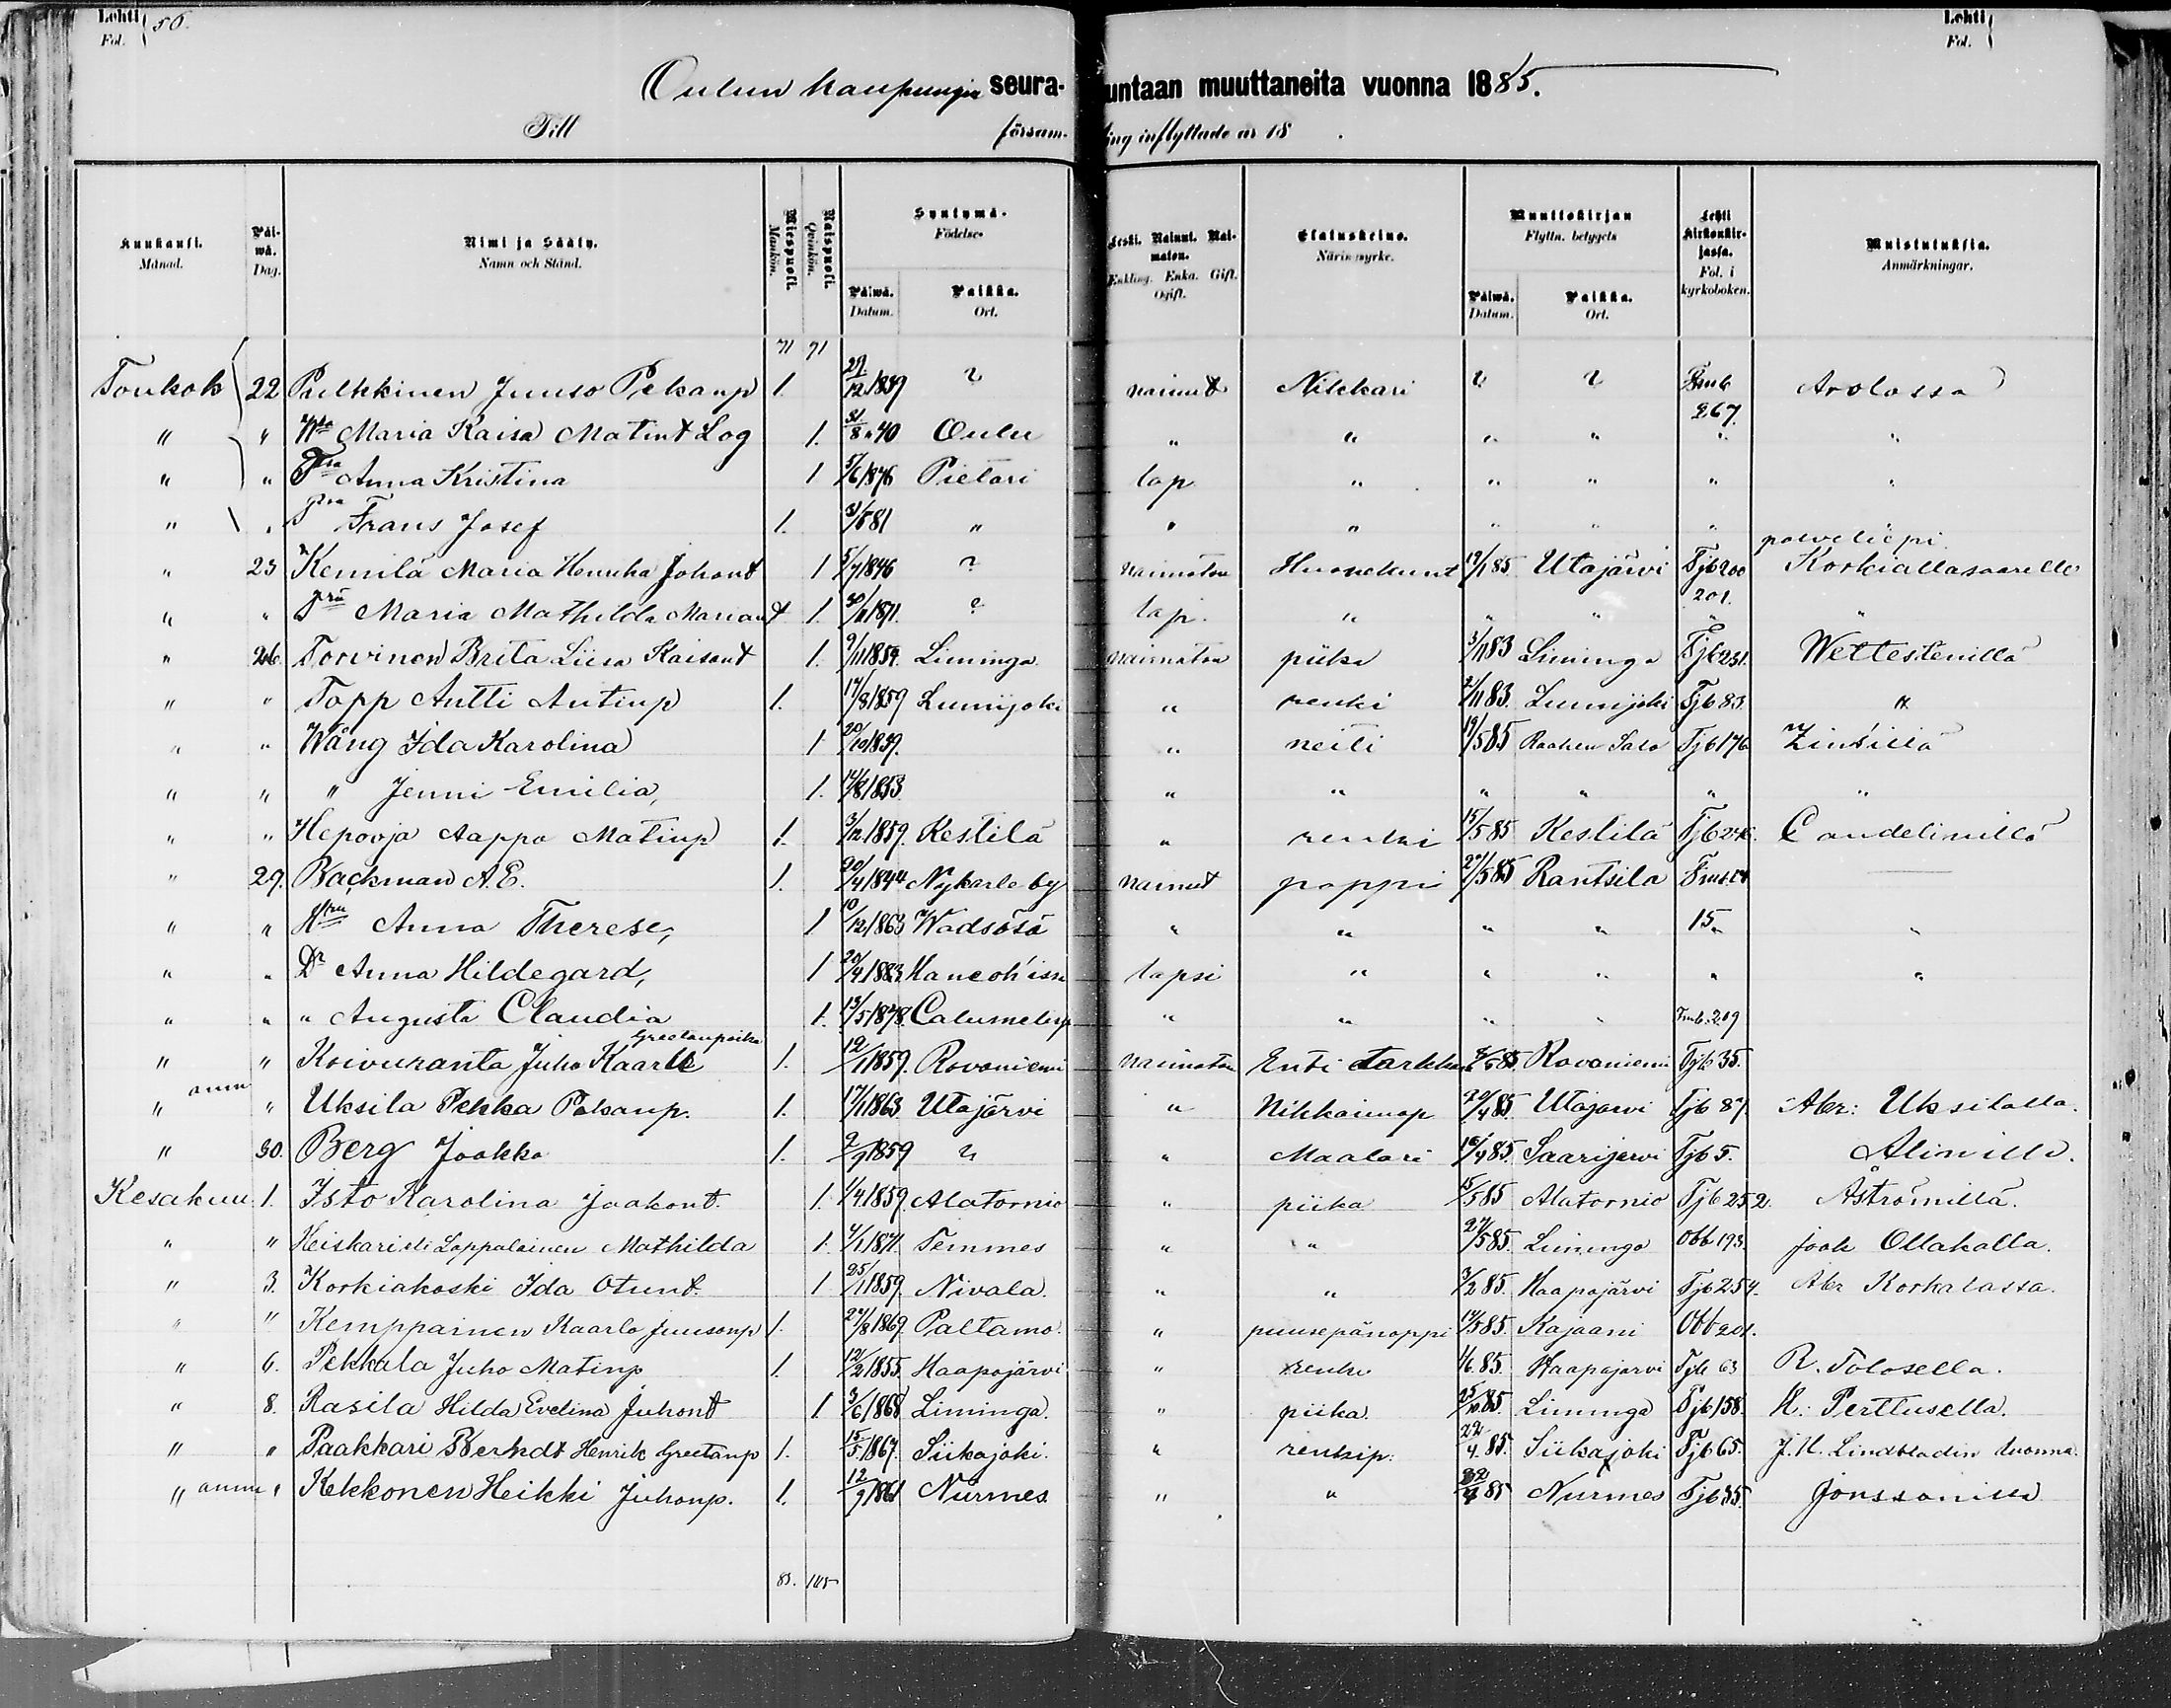 Lehti Fol. 56. Lehti Fol.
Oulun kaupungin seurakuntaan muuttaneita vuonna 1885.
Till församling inflyttade år 18 .
Kuukausi. Månad. Päiwä. Dag. Nimi ja Sääty. Namn och Stånd. Miespuoli. Mankön. Naispuoli. Qvinkön. Syntymä- Födelse- Leski. Nainut. Naimaton. Enkling. Enka. Gift. Ogift. Elatuskeino. Näringsyrke. Muuttokirjan Flyttn. betygets Lehti kirkonkirjassa. Fol. i kyrkoboken. Muistutuksia. Anmärkningar.
Päiwä. Datum. Paikka. Ort. Päiwä. Datum. Paikka. Ort.
71 91
Toukok 22 Pulkkinen Juuso Pekanp 1. 29/12 1839 ? nainut Nikkari ? ? 267. Arolassa
" " Maria Kaisa Matint Log 1. 31/8 "40 Oulu " " " " " "
" " Anna Kristina 1 5/6 1876 Pietari lap " " " " "
" " Frans Josef 1. 3/5 81 " " " " " "
" 23 Kemilä Maria Henrika Johant 1 5/7 1846 ? naimaton 19/1 85 Utajärvi Tjb 200 palvelee Korkiallasaarella
" " Maria Mathilda Mariant 1. 30/11 1871. ? lap. " " " 201. "
" 26. Torvinen Brita Liisa Kaisant 1. 9/11 1859. Liminga naimaton piika 3/11 83 Liminga Tjb 231.
" " Topp Antti Antinp 1. 17/8 1859 Lumijoki " renki 2/11 83. Lumijoki Tjb 83. "
" " Wång Ida Karolina 1 20/10 1839. " neiti 19/5 85 Raahen Salo Tjb 176
" " " Jenni Emilia, 1. 14/8 1853 " " " " " "
" " Hepooja Aappo Matinp 1. 3/12 1859. Kestilä " renki 15/5 85 Kestilä Candelinillä
" 29. Backman A. E. 1. 20/4 1844 Nykarleby nainut pappi 20/5 85 Rantsila
" " Anna Therese, 1 10/12 1863 Wadsösä " " " " 15. "
" " Dr Anna Hildegard, 1 20/4 1883 lapsi " " " " "
" " " Augusta Claudia 1. 13/5 1878. " " " " 209
" " Koivuranta Juho Kaarle Greetanpoika 1. 12/1 1859. Rovaniemi naimaton Rovaniemi Tjb 35.
" " Uksila Pekka Pekanp. 1. 17/1 1863 Utajärvi " 20/4 85. Utajarvi Tjb 87 Akr: Uksilalla.
" 30. Berg Jaakko 1. 2/9 1859 ? " Maalari Saarijervi Tjb 5. Alinilla.
Kesakuu. 1. Isto Karolina Jaakont. 1. 1/4 1859. Alatornio " piika 15/5 85 Alatornio Tjb 252. Åströmillä.
" " Heiskari eli Lappalainen Mathilda 1. 4/1 1871. Temmes " " 27/5 85. Liminga Obb 193. Ollakalla.
" 3. Korkiakoski Ida Otunt. 1 25/1 1859. Nivala. " " 3/2 85. Haapajärvi Tjb 254. Akr Korkalassa.
" " Kemppainen Kaarlo Juusonp 1. 27/8 1869. Paltamo. " puusepänoppi 19/5 85. Kajaani Obb 201.
" 6. Pekkala Juho Matinp 1. 12/2 1855. Haapajärvi " renki 1/6 85. Haapajarvi Tjb 63 R. Tolosella.
" 8. Rasila Hilda Evelina Juhont 1. 3/6 1868 Liminga. " piika. 25/10 85. Liminga Tjb 158. H. Perttusella.
" " Paakkari Berhdt Henrik Greetanp 1. 15/5 1867. Siikajoki. " renkip. 22/4. 85. Siikajoki Tjb 65. J. H. Lindbladin luonna.
" " Kekkonen Heikki Juhonp. 1. 12/9 1861 Nurmes. " " 85 Nurmes Tjb 35. Jonssonilla